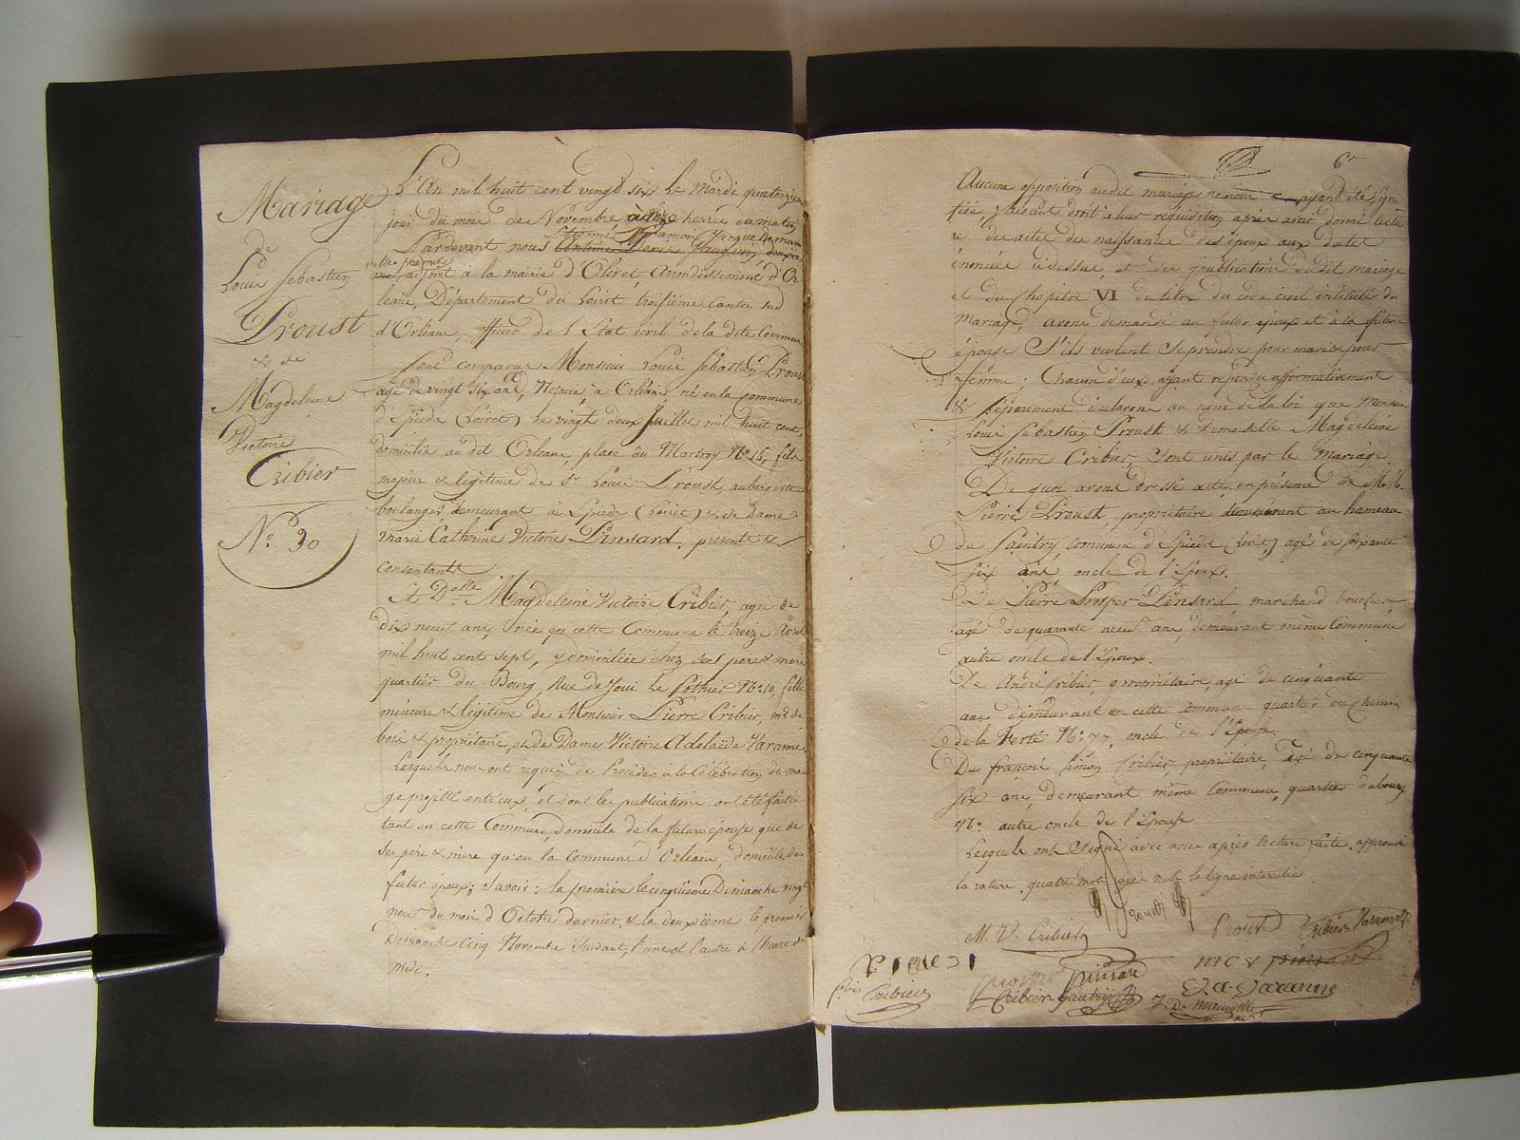 Mariage
de
Louis Sebastien
Proust
et de
Magdeleine
Victoire
Cribier
N.º 30
L'An mil huit cent vingt six le Mardi quatorzieme
jour du mois de Novembre à dix heures du matin
Pardevant nous
adjoint à la mairie d'Olivet arrondissement d'Or
leans, Département du Loiret, troisième canton sud
d'Orléans, officier de l'Etat civil de la dite Commune
Sont comparus Monsieur Louis Sebastien Proust
agé de vingt six ans, Negoc.t à Orléans, né en la commune
d'Epieds (Loiret) le vingt deux Juillet mil huit cent,
domicilié au dit Orleans, place du Martroy N.º 15, fils
majeur et legitime de S.r Louis Proust, aubergiste
boulanger demeurant à Epieds (Loiret) et de Dame
Marie Catherine Victoire Pinsard, présents et
consentants
Et D.elle Magdeleine Victoire Cribier, agée de
dix neuf ans, née en cette Commune le treize
mil huit cent sept, y domiciliée chez ses pere et mere
quartier du Bourg, Rue de Joui le Pothier N.º 10, fille
mineure et légitime de Monsieur Pierre Cribier, md de
bois et propriétaire, et de Dame Victoire Adelaïde Varanne
Lesquels nous ont requis de Procéder à la Célébration du ma
ge projetté entr'eux, et dont les publications ont été faites
tant en cette Commune, domicile de la future épouse que de
ses père et mère qu'en la commune d'Orleans, domicile du
futur époux; Savoir: la première le cinquième Dimanche vingt
neuf du mois d'Octobre dernier, et la deuxième le premier
Dimanche cinq Novembre suivant, l'une et l'autre à l'heure de
midi.
6
Aucune opposition audit mariage ne nous ayant été signi
fiée, faisant droit à leur réquisition, après avoir donné lecture
des actes de naissance des époux aux dates
énoncées cidessus, et des publications dudit mariage
et du Chapitre VI du titre du code civil intitulé du
Mariage, avons demandé au futur époux et à la future
épouse S'ils veulent se prendre pour mari et pour
femme; Chacun d'eux ayant répondu affirmativement
et séparément déclarons au nom de la loi que Monsieur
Louis Sebastien Proust et demoiselle Magdeleine
Victoire Cribier, Sont unis par le Mariage.
De quoi avons dressé acte en présence de M.M.
Pierre Proust, propriétaire demeurant au hameau
de Saintry commune d'Epieds (Loiret) agé de soixante
six ans oncle de l'Epoux.
De Pierre Prosper Pinsard, marchand
agé de quarante neuf ans, demeurant même Commune
autre oncle de l'Epoux.
De André Cribier, propriétaire, agé de cinquante
ans demeurant en cette commune quartier du Chemin
de la Ferté N.º 77, oncle de l'Epouse
De françois Simon Cribier, propriétaire, agé de cinquante
six ans, demeurant même Commune, quartier
N.º autre oncle de l'Epouse
Lesquels ont signé avec nous après lecture faite, approuvé
la rature quatre mots
M. V. Cribier
Proust
Cribier
Cribier
Cribier